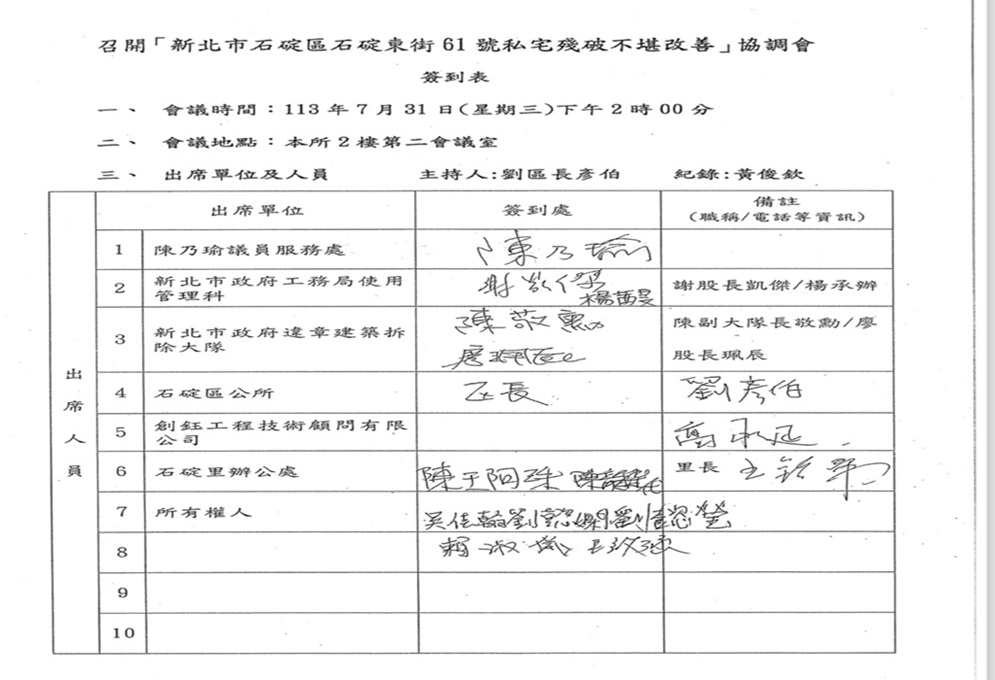 召開「新北市石碇區石碇東街61號私宅殘破不堪改善」協調會
簽到表
一、 會議時間：113年7月31日(星期三)下午2時00分
二、 會議地點：本所2樓第二會議室
三、 出席單位及人員 主持人:劉區長彥伯 紀錄:黃俊欽
出席單位 簽到處 備註
(職稱/電話等資訊)
出席人員
1 陳乃瑜議員服務處 陳乃瑜
2 新北市政府工務局使用
管理科 謝凱傑 謝股長凱傑/楊承辦
3 新北市政府違章建築拆
除大隊 陳敬勳 陳副大隊長敬勳/廖
廖珮辰 股長珮辰
4 石碇區公所 區長 劉彥伯
5 創鈺工程技術顧問有限
公司
6 石碇里辦公處 陳王阿珠 里長
7 所有權人 吳佳翰
8 賴淑
9
10